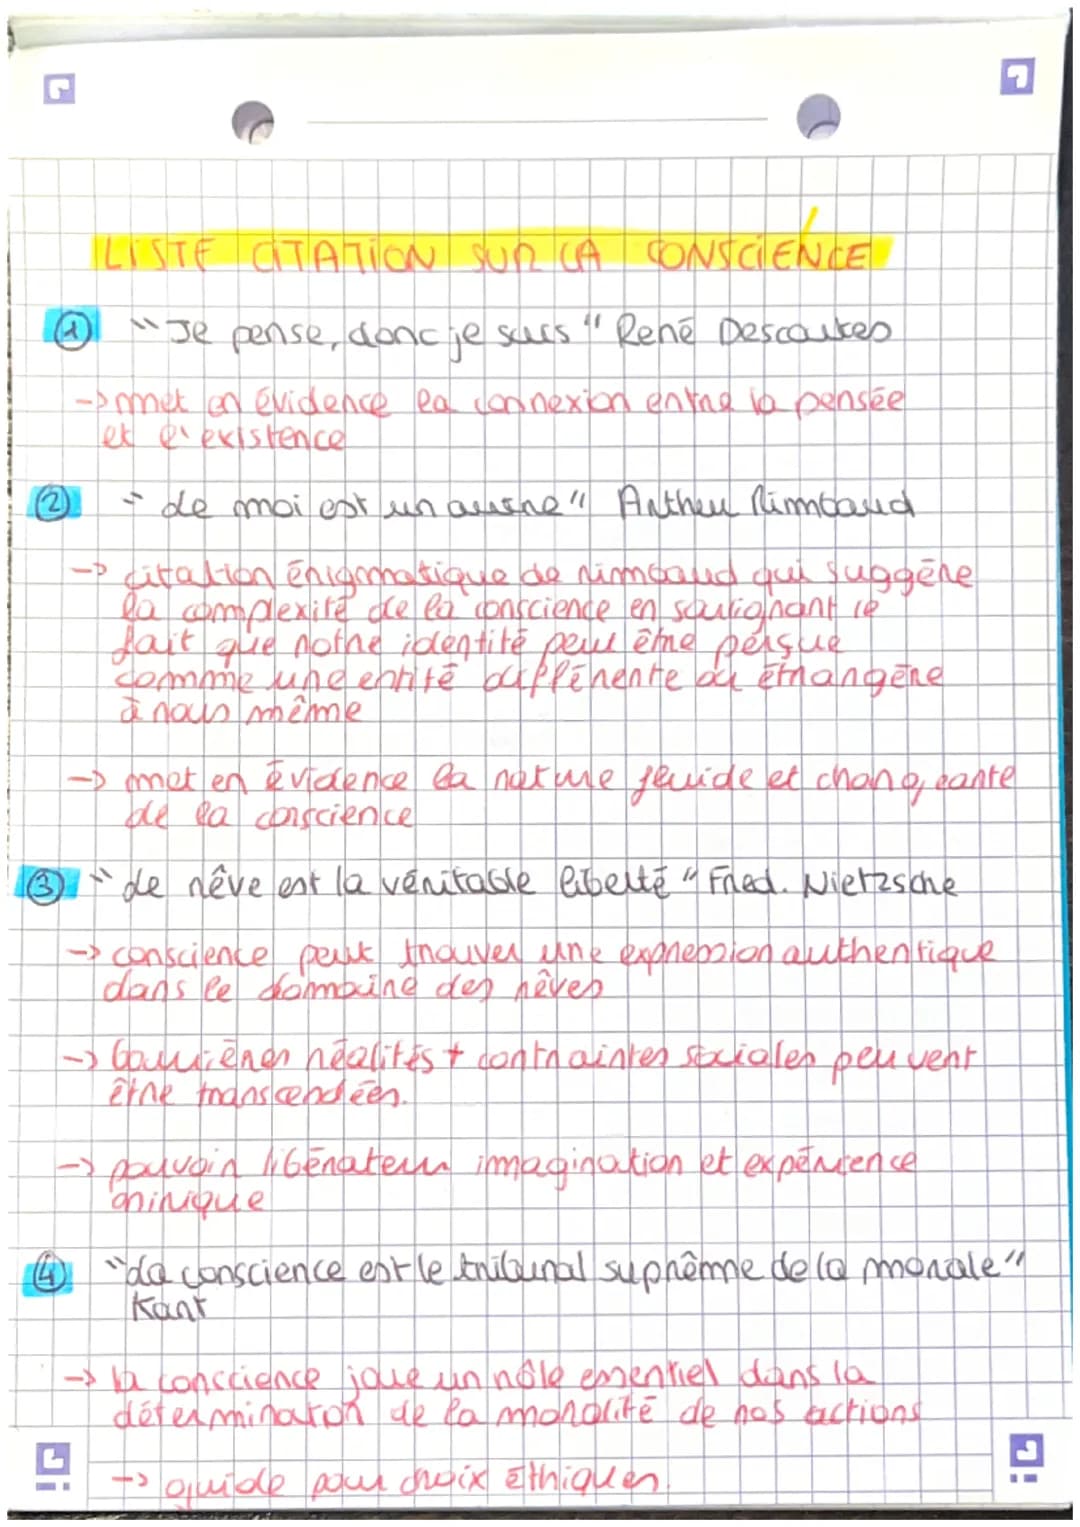 LISTE CITATION SUR LA CONSCIENCE
1 "Je pense, donc je suis" René Descartes
-> met en évidence la connexion entre la pensée
et l'existence
2 "Le moi est un autre" Arthur Rimbaud
-> citation énigmatique de rimbaud qui suggère
la complexité de la conscience en soulignant le
fait que notre identité peut être persçue
comme une entité différente ou étrangère
à nous même
-> met en évidence la nature fluide et changeante
de la conscience
3 "Le rêve est la véritable liberté" Fried. Nietzsche
-> conscience peut trouver une expression authentique
dans le domaine des rêves
-> barrières réalités + contraintes sociales peuvent
être transcendées.
-> pouvoir libérateur immagination et expérience
onirique
4 "La conscience est le tribunal suprême de la morale"
Kant
-> la conscience joue un rôle essentiel dans la
détermination de la moralité de nos actions
-> guide pour choix éthiques.